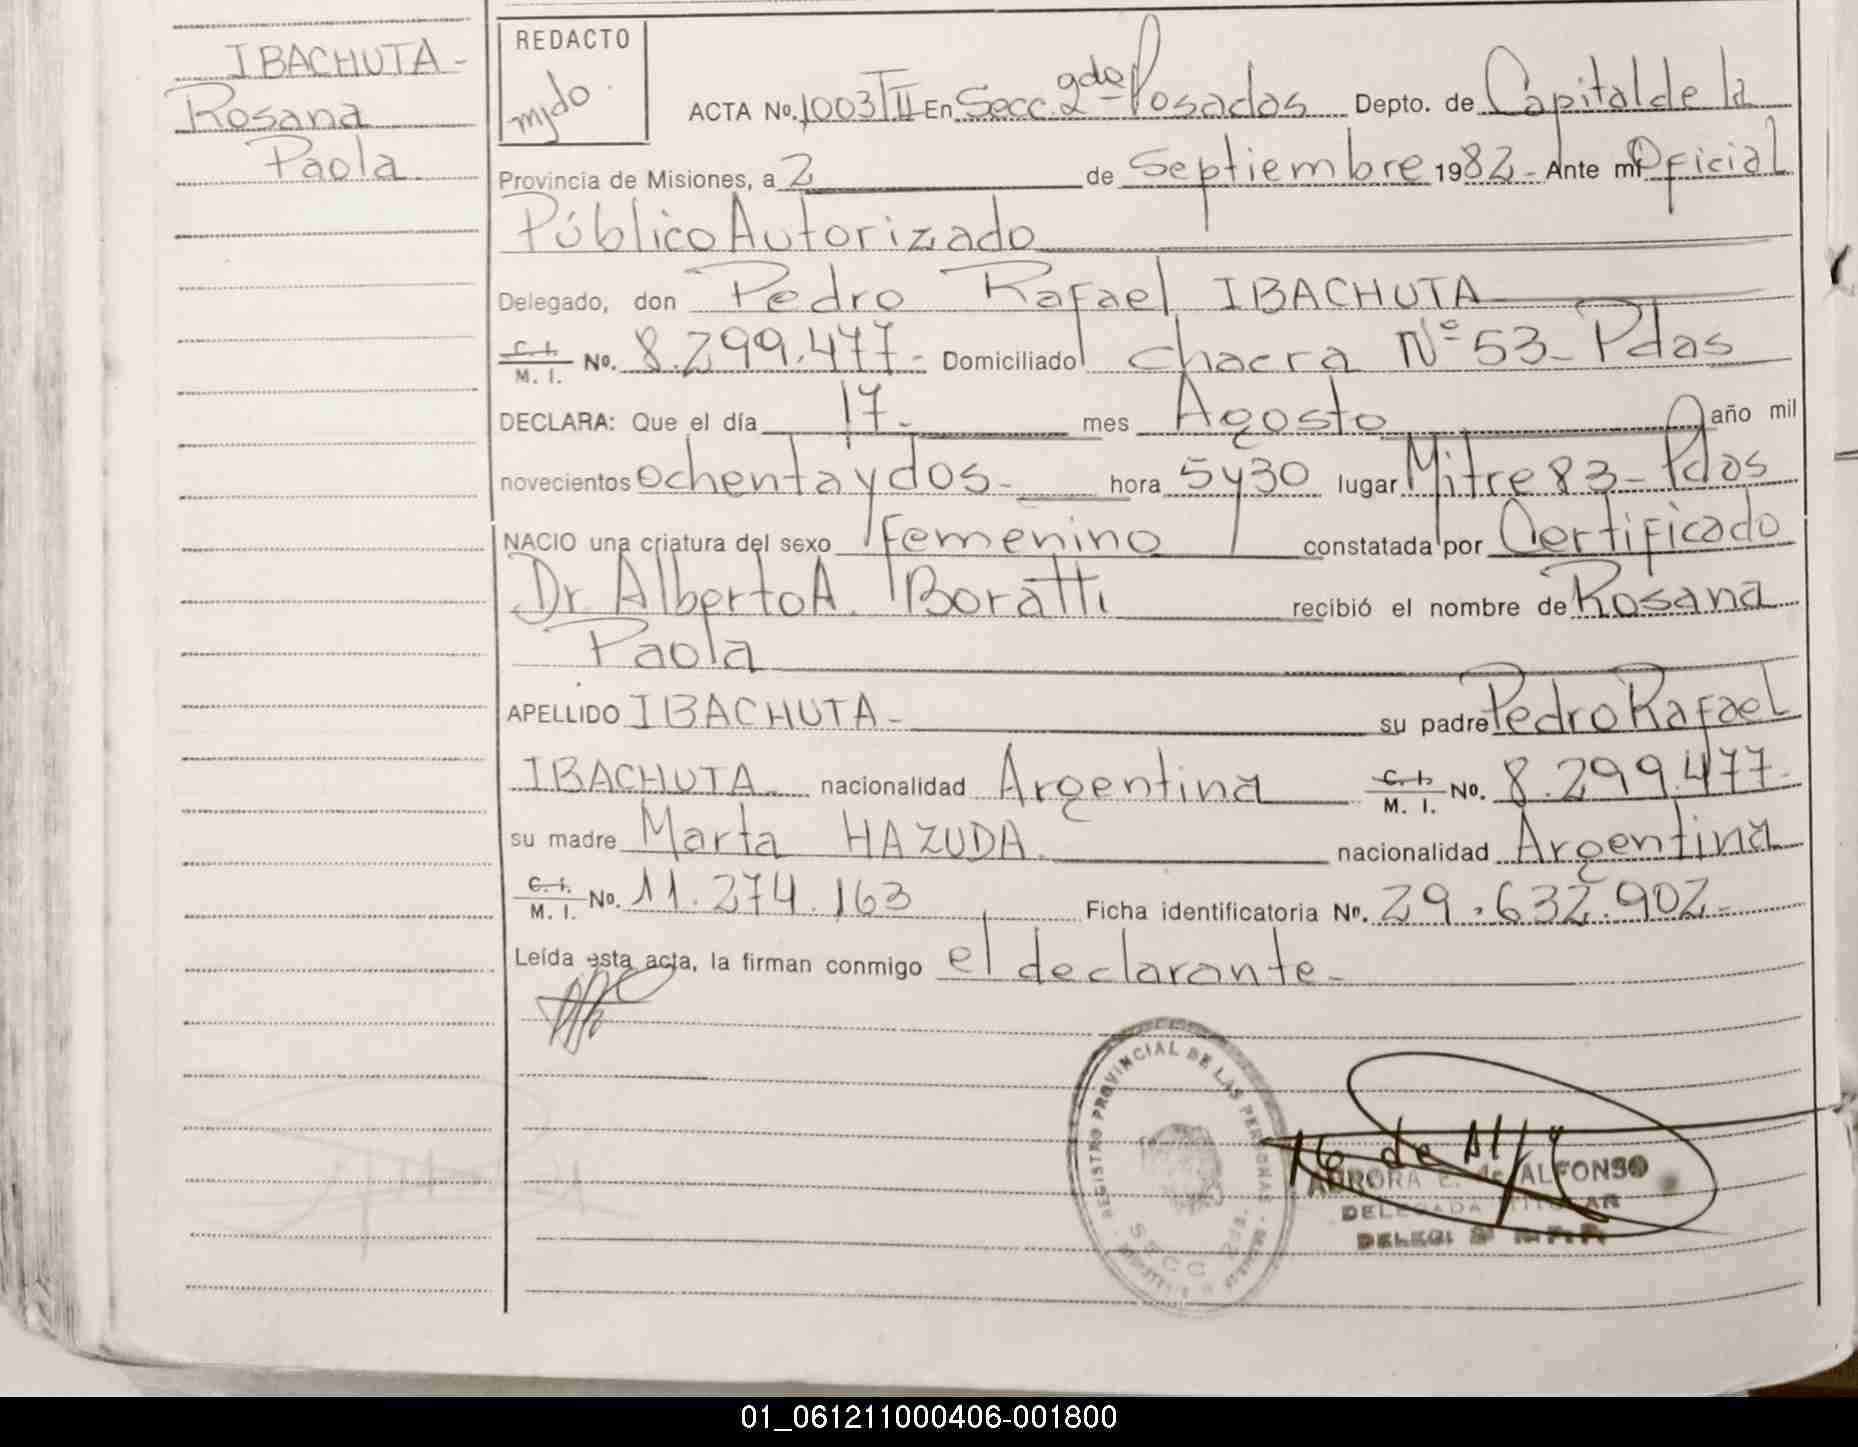 IBACHUTA-
Rosana
Paola.
REDACTO
mjdo.
ACTA No. 1003 TII En Secc. 2da- Posadas Depto. de Capital de la
Provincia de Misiones, a 2 de Septiembre 1982- Ante mí Oficial
Público Autorizado
Delegado, don Pedro Rafael IBACHUTA
C. I. / M. I. No. 8.299.477- Domiciliado chacra Nº 53- Pdas
DECLARA: Que el día 17- mes Agosto año mil
novecientos ochenta y dos- hora 5 y 30 lugar Mitre 83- Pdas
NACIO una criatura del sexo femenino constatada por Certificado
Dr. Alberto A. Boratti recibió el nombre de Rosana
Paola
APELLIDO IBACHUTA- su padre Pedro Rafael
IBACHUTA- nacionalidad Argentina C. I. / M. I. No. 8.299.477-
su madre Marta HAZUDA. nacionalidad Argentina
C. I. / M. I. No. 11.274.163 Ficha identificatoria No. 29.632.902-
Leída esta acta, la firman conmigo el declarante-
REGISTRO PROVINCIAL DE LAS PERSONAS
SECC 2da.
AURORA E. de ALFONSO
DELEGADA TITULAR
01_061211000406-001800